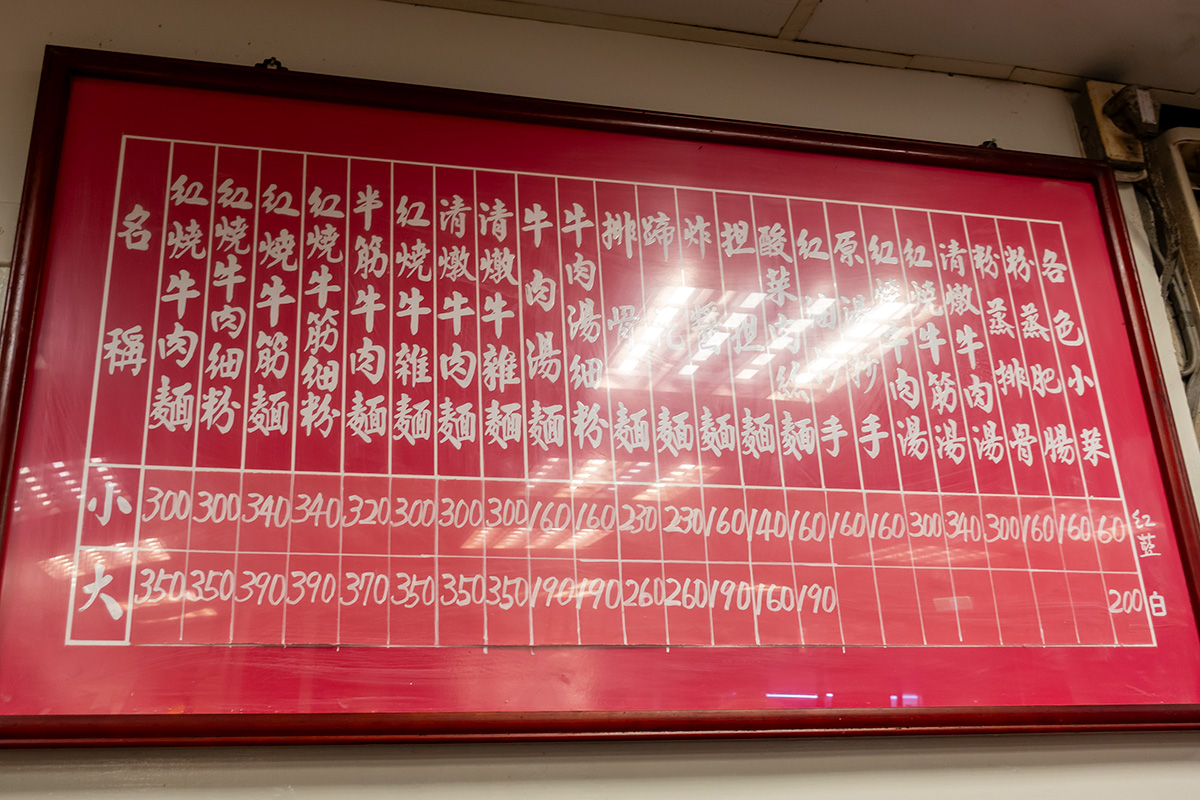 名稱 小 大
紅燒牛肉麵 300 350
紅燒牛肉細粉 300 350
紅燒牛筋麵 340 390
紅燒牛筋細粉 340 390
半筋牛肉麵 320 370
紅燒牛雜麵 300 350
清燉牛肉麵 300 350
清燉牛雜麵 300 350
牛肉湯麵 160 190
牛肉湯細粉 160 190
排骨麵 230 260
蹄花麵 230 260
炸醬麵 160 190
担担麵 140 160
酸菜肉絲麵 160 190
紅油抄手 160
原湯抄手 160
紅燒牛肉湯 300
紅燒牛筋湯 340
清燉牛肉湯 300
粉蒸排骨 160
粉蒸肥腸 160
各色小菜 60 200
紅 白